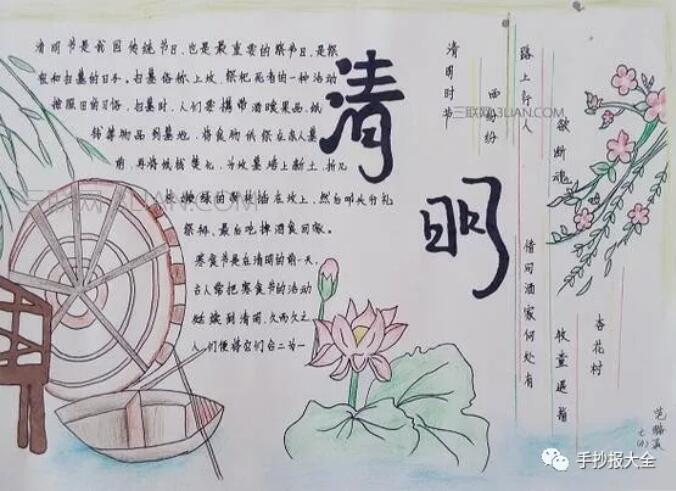 清明节是我国传统节日,也是最重要的祭节日,是祭
祖和扫墓的日子。扫墓俗称上坟,祭祀死者的一种活动
按照旧的习俗,扫墓时,人们要携带酒食果品,纸
钱等物品到墓地,将食物供祭在亲人墓
前,再将纸钱焚化,为坟墓培上新土,折几
枝嫩绿的新枝插在坟上,然后叩头行礼
祭拜,最后吃掉酒食回家。
寒食节是在清明的前一天,
古人常把寒食节的活动
延续到清明,久而久之
人们便将它们合二为一
清明
清明时节
雨纷纷
路上行人
欲断魂
借问酒家何处有
牧童遥指
杏花村
三联网3LIAN.COM
三联网3LIAN.COM
手抄报大全